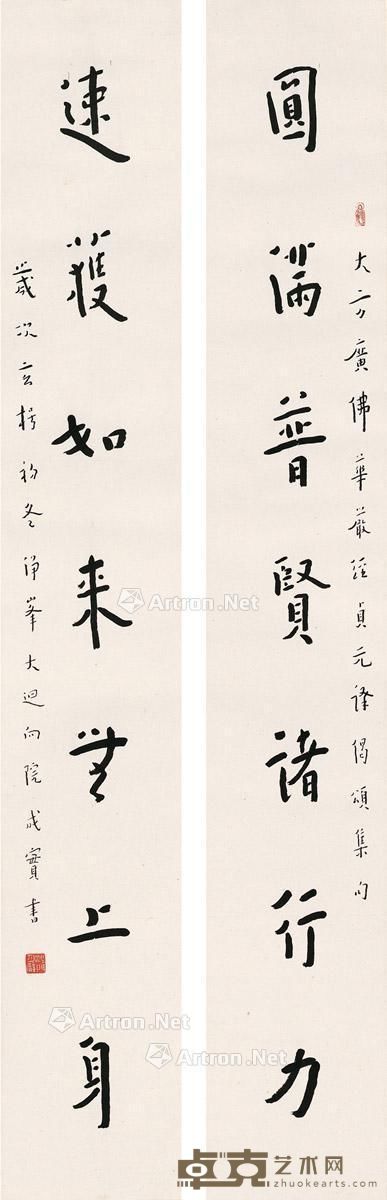 圓滿普賢諸行力
大方廣佛華嚴經貞元譯偈頌集句
速獲如来無上身
歲次玄枵初冬淨峯大迴向院成實書
Artron.Net
Artron.Net
Artron.Net
Artron.Net
卓克艺术网
zhuokearts.com